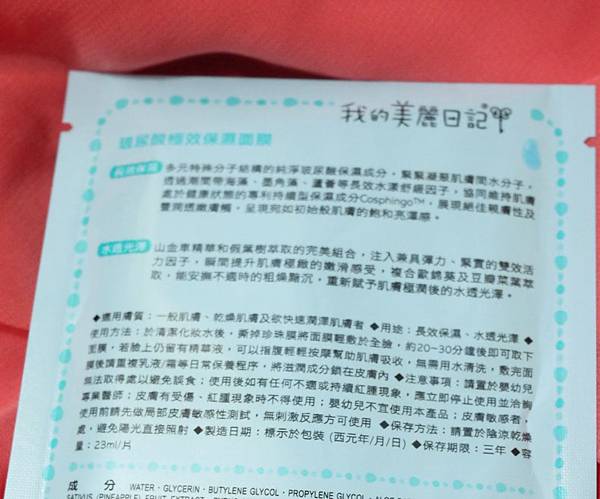 我的美麗日記
玻尿酸極效保濕面膜
長效保濕 多元特殊分子結構的純淨玻尿酸保濕成分，緊緊凝聚肌膚間水分子，
透過潮間帶海藻、墨角藻、蘆薈等長效水漾舒緩因子，協同維持肌膚
處於健康狀態的專利持續型保濕成分Cosphingo™，展現絕佳親膚性及
豐潤透嫩膚觸，呈現宛如初始般肌膚的飽和亮澤感。
水透光澤 山金車精華和假葉樹萃取的完美組合，注入兼具彈力、緊實的雙效活
力因子，瞬間提升肌膚極緻的嫩滑感受，複合歐錦葵及豆瓣菜葉萃
取，能安撫不適時的粗燥黯沉，重新賦予肌膚極潤後的水透光澤。
◆適用膚質：一般肌膚、乾燥肌膚及欲快速潤澤肌膚者 ◆用途：長效保濕、水透光澤 ◆
使用方法：於清潔化妝水後，撕掉珍珠膜將面膜輕敷於全臉，約20~30分鐘後即可取下
面膜，若臉上仍留有精華液，可以指腹輕輕按摩幫助肌膚吸收，無需用水清洗，敷完面
膜後請重複乳液/霜等日常保養程序，將滋潤成分鎖在皮膚內 ◆注意事項：請置於嬰幼兒
無法取得處以避免誤食；使用後如有任何不適或持續紅腫現象，應立即停止使用並洽詢
專業醫師；皮膚有受傷、紅腫現象時不得使用；嬰幼兒不宜使用本產品；皮膚敏感者，
使用前請先做局部皮膚敏感性測試，無刺激反應方可使用 ◆保存方法：請置於陰涼乾燥
處，避免陽光直接照射 ◆製造日期：標示於包裝 (西元年/月/日) ◆保存期限：三年 ◆容
量：23ml/片
成 分 WATER、GLYCERIN、BUTYLENE GLYCOL、PROPYLENE GLYCOL、
SATIVUS (PINEAPPLE) FRUIT EXTRACT